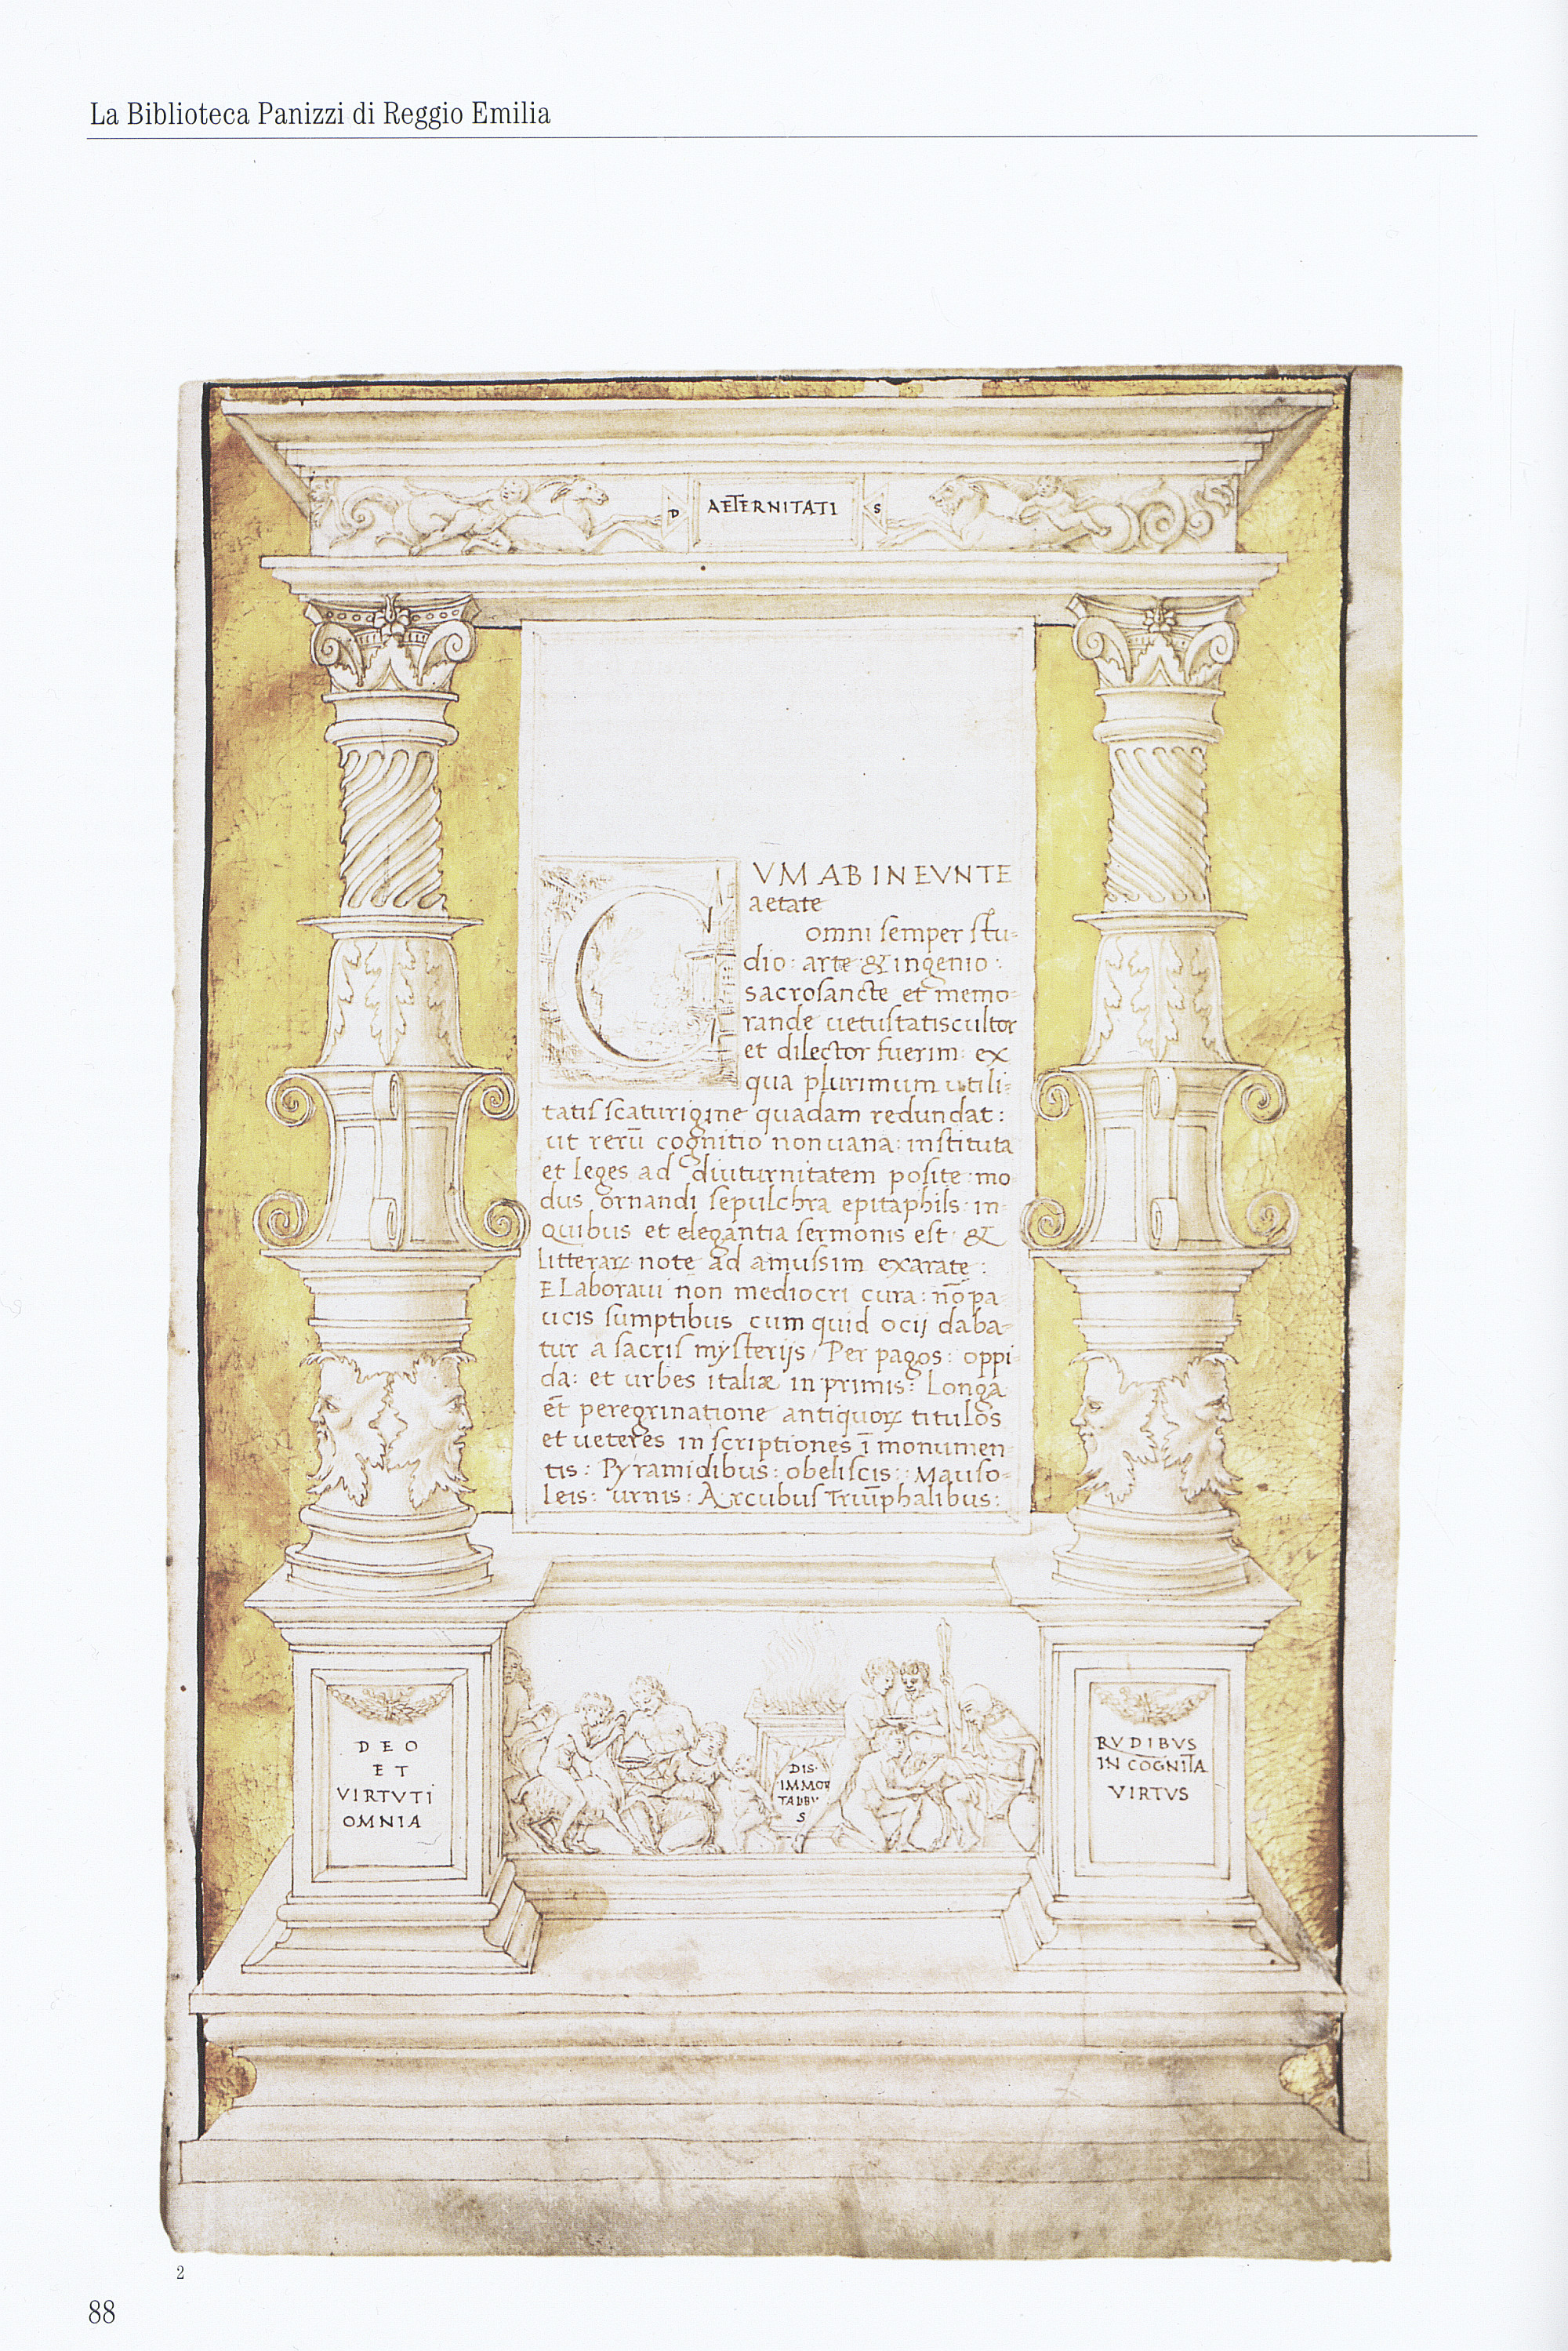 La Biblioteca Panizzi di Reggio Emilia
D AETERNITATI S
CVM AB INEVNTE
aetate
omni semper stu-
dio: arte & ingenio:
sacrosancte et memo-
rande uetustatis cultor
et dilector fuerim: ex
qua plurimum utili-
tatis scaturigine quadam redundat:
ut rerū cognitio non uana: instituta
et leges ad diuturnitatem posite: mo
dus ornandi sepulchra epitaphiis: in-
quibus et elegantia sermonis est: &
litterarꝝ note ad amussim exarate:
ELaboraui non mediocri cura: nō pa
ucis sumptibus cum quid ocij daba-
tur a sacris mysterijs / Per pagos: oppi-
da: et urbes italiæ in primis: Longa
et peregrinatione antiquorꝝ titulos
et ueteres inscriptiones ī monumen-
tis: Pyramidibus: obeliscis: Mauso-
leis: urnis: Arcubus Triūphalibus:
DEO
ET
VIRTVTI
OMNIA
DIS·
IMMOR
TALIBV
S
RVDIBVS
INCOGNITA
VIRTVS
2
88